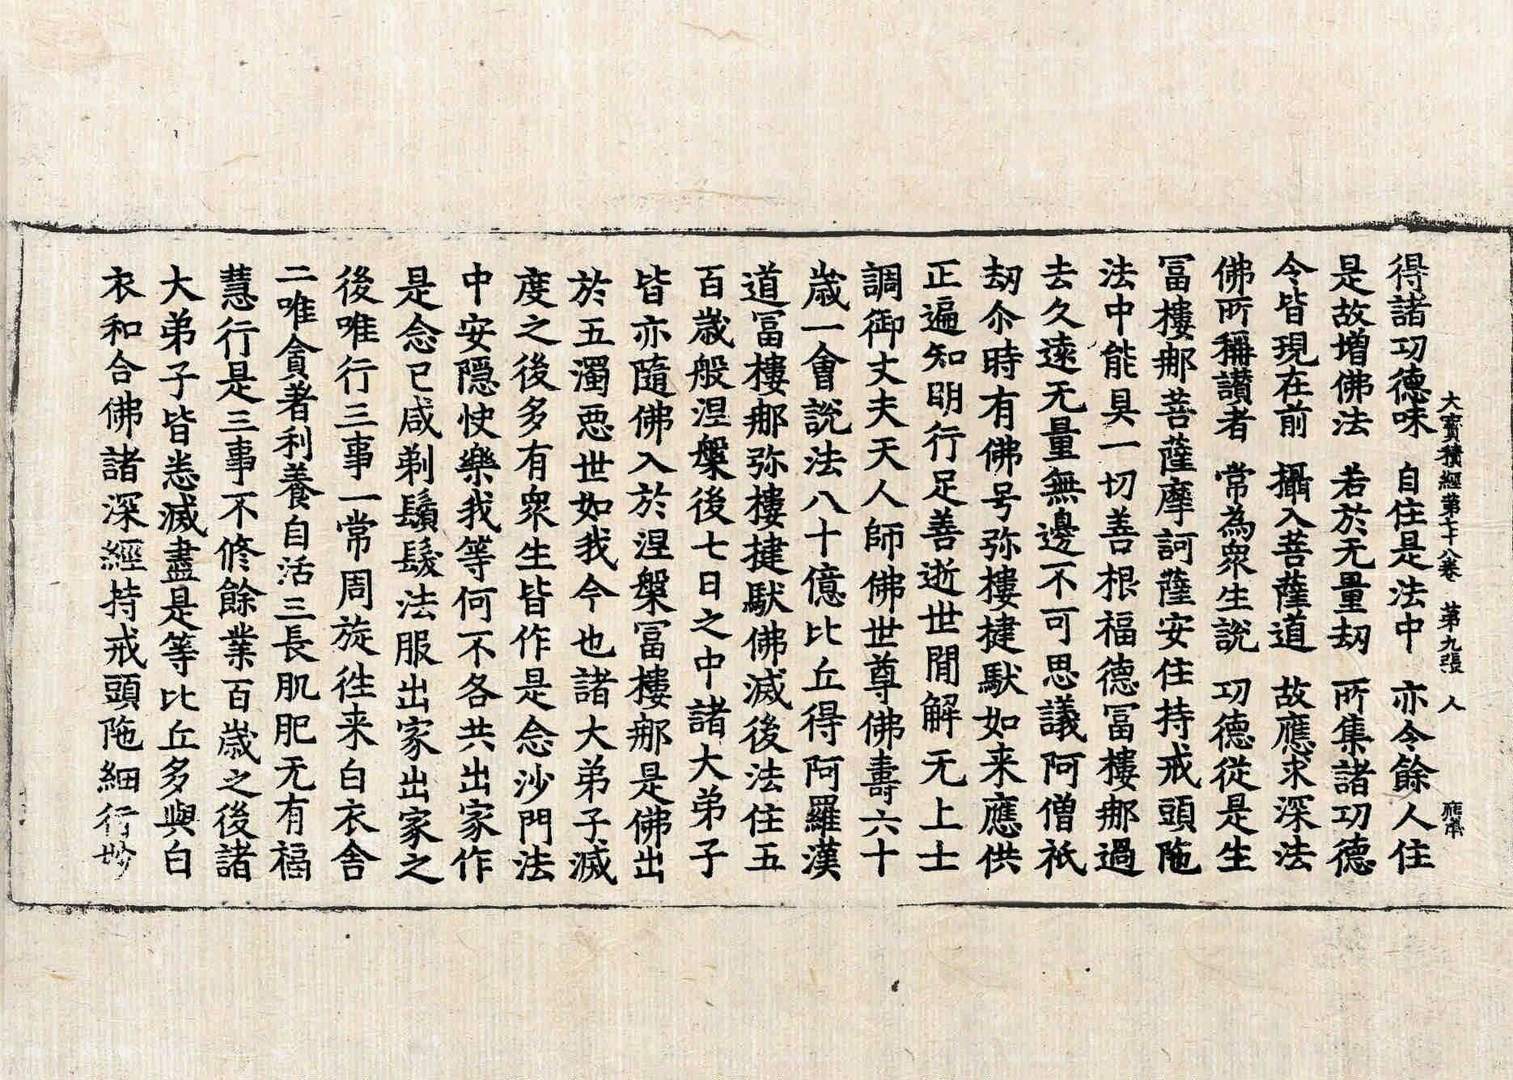 大寶積經第七十八卷 第九張 人
得諸功德味 自住是法中 亦令餘人住
是故增佛法 若於无量劫 所集諸功德
令皆現在前 攝入菩薩道 故應求深法
佛所稱讃者 常為衆生說 功德從是生
冨樓那菩薩摩訶薩安住持戒頭陁
法中能具一切善根福德冨樓那過
去久遠无量無邊不可思議阿僧祇
劫尒時有佛号弥樓揵馱如来應供
正遍知明行足善逝世閒解无上士
調御丈夫天人師佛世尊佛壽六十
歳一會說法八十億比丘得阿羅漢
道冨樓那弥樓揵馱佛滅後法住五
百歳般涅槃後七日之中諸大弟子
皆亦隨佛入於涅槃冨樓那是佛出
於五濁惡世如我今也諸大弟子滅
度之後多有衆生皆作是念沙門法
中安隱快樂我等何不各共出家作
是念已咸剃鬚髮法服出家出家之
後唯行三事一常周旋徃来白衣舎
二唯貪著利養自活三長肌肥无有福
慧行是三事不修餘業百歳之後諸
大弟子皆悉滅盡是等比丘多與白
衣和合佛諸深經持戒頭陁細行妙